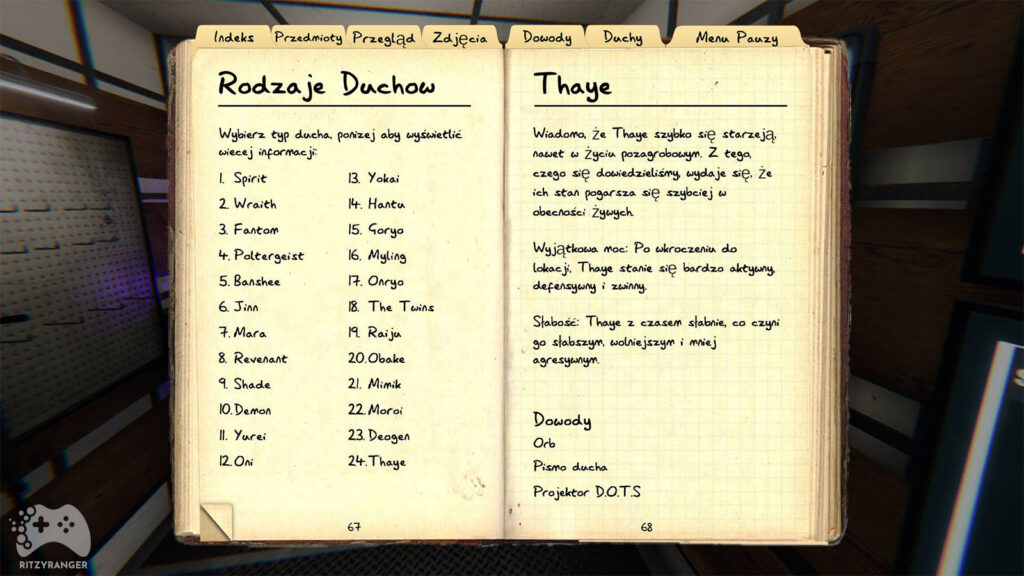 Indeks
Przedmioty
Przegląd
Zdjęcia
Dowody
Duchy
Menu Pauzy
Rodzaje Duchow
Wybierz typ ducha, ponizej aby wyświetlić
wiecej informacji:
1. Spirit
2. Wraith
3. Fantom
4. Poltergeist
5. Banshee
6. Jinn
7. Mara
8. Revenant
9. Shade
10. Demon
11. Yurei
12. Oni
13. Yokai
14. Hantu
15. Goryo
16. Myling
17. Onryo
18. The Twins
19. Raiju
20. Obake
21. Mimik
22. Moroi
23. Deogen
24. Thaye
67
Thaye
Wiadomo, że Thaye szybko się starzeją,
nawet w życiu pozagrobowym. Z tego,
czego się dowiedzieliśmy, wydaje się, że
ich stan pogarsza się szybciej w
obecności żywych.
Wyjątkowa moc: Po wkroczeniu do
lokacji, Thaye stanie się bardzo aktywny,
defensywny i zwinny.
Słabość: Thaye z czasem słabnie, co czyni
go słabszym, wolniejszym i mniej
agresywnym.
Dowody
Orb
Pismo ducha
Projektor D.O.T.S
68
RITZYRANGER